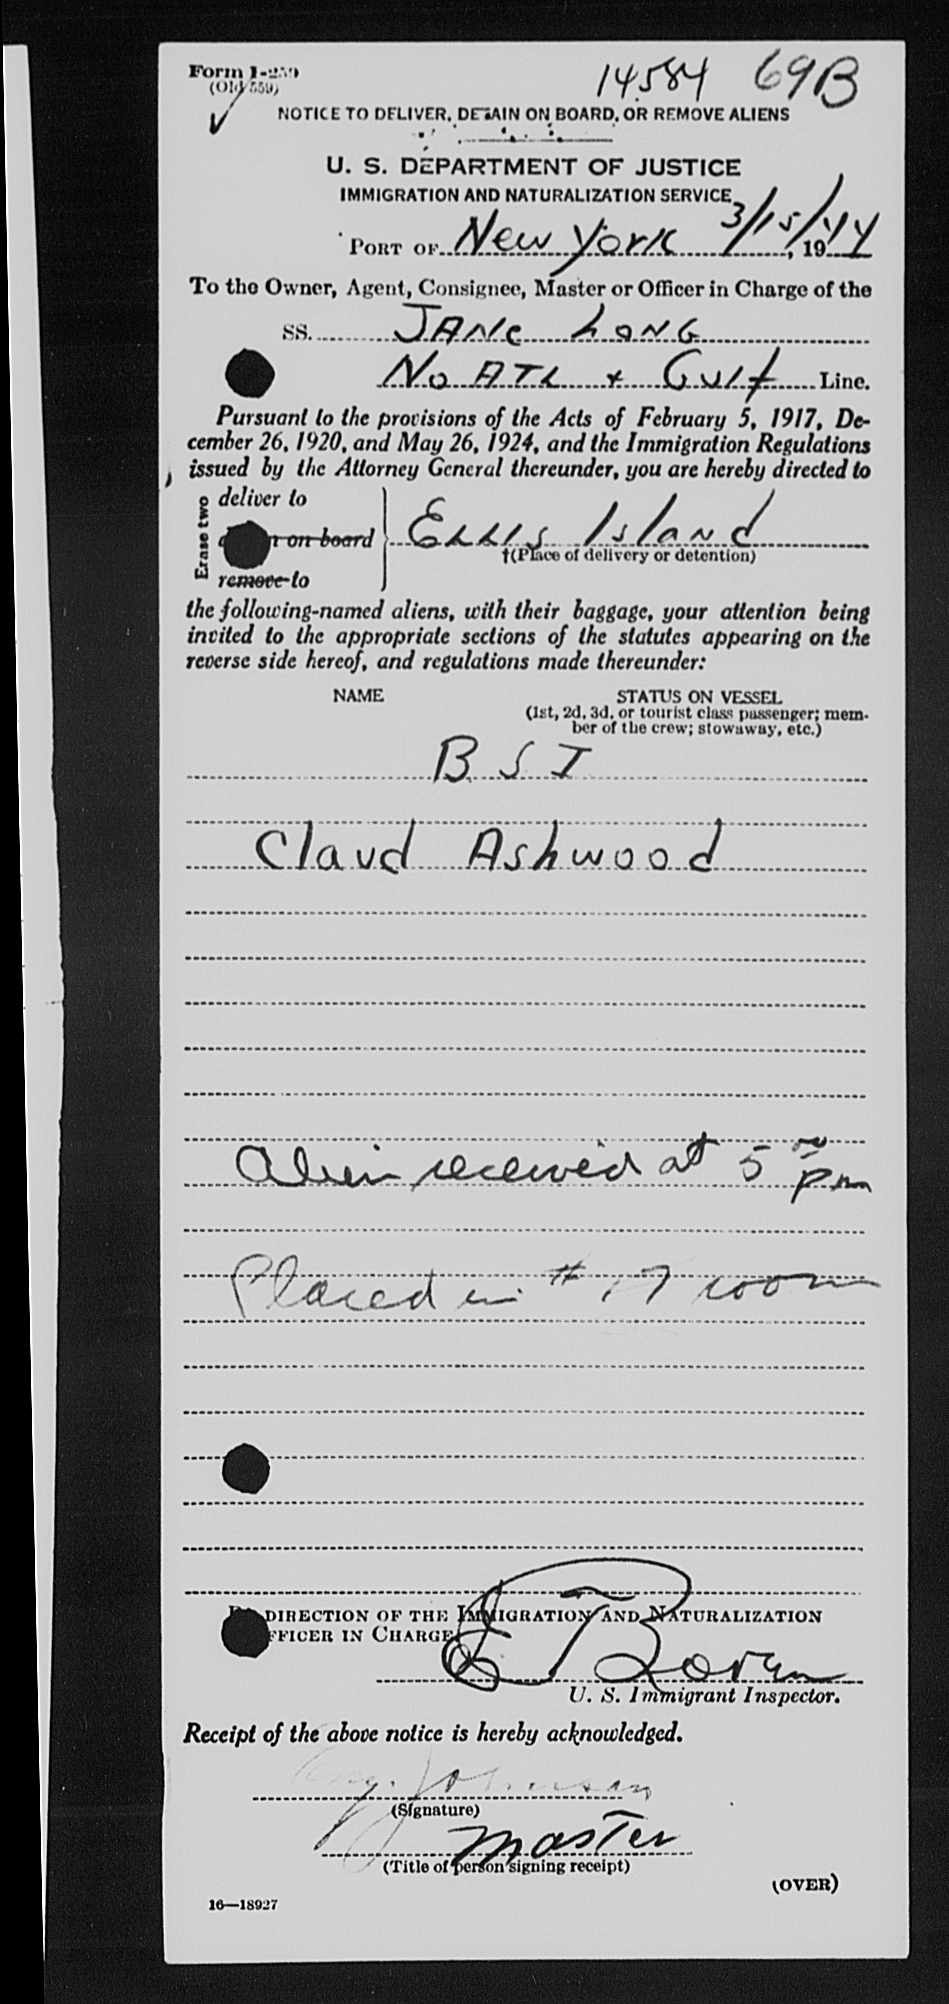 Form I-259
(Old 559)
14584 69B
NOTICE TO DELIVER, DETAIN ON BOARD, OR REMOVE ALIENS
U. S. DEPARTMENT OF JUSTICE
IMMIGRATION AND NATURALIZATION SERVICE
PORT OF New York 3/15/, 1944
To the Owner, Agent, Consignee, Master or Officer in Charge of the
SS. JANE LONG
No ATL + Gulf Line.
Pursuant to the provisions of the Acts of February 5, 1917, De-
cember 26, 1920, and May 26, 1924, and the Immigration Regulations
issued by the Attorney General thereunder, you are hereby directed to
Erase two
deliver to
on board
remove to
Ellis Island
†(Place of delivery or detention)
the following-named aliens, with their baggage, your attention being
invited to the appropriate sections of the statutes appearing on the
reverse side hereof, and regulations made thereunder:
NAME STATUS ON VESSEL
(1st, 2d, 3d, or tourist class passenger; mem-
ber of the crew; stowaway, etc.)
B S I
Claud Ashwood
Alien received at 5 00 pm
Placed in # 17 room
DIRECTION OF THE IMMIGRATION AND NATURALIZATION
OFFICER IN CHARGE
U. S. Immigrant Inspector.
Receipt of the above notice is hereby acknowledged.
Johnson
(Signature)
Master
(Title of person signing receipt)
(OVER)
16—18927